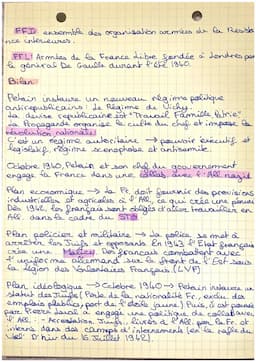 FFI ensemble des organisation armées de la Résista
nce intérieures.
FFL: Armées de la France Libre fondée à Londres par
le général De Gaulle durant l'été 1940.
Bilan
Pétain instaure un nouveau régime politique
antirépublicains: le Régime de Vichy.
La devise républicaine est "Travail Famille Patrie".
La Propagande organise le culte du chef et impose la
révolution nationale
C'est un régime autoritaire → pouvoir exécutif et
législatif, régime xénophobe et antisémite.
Octobre 1940, Pétain et son chef du gouvernement
engage la France dans une collab avec l'All nazie
Plan économique → la Fr. doit fournir des provisions
industrielles et agricoles à l'All, ce qui crée une pénurie
Dès 1942 les français sont obligés d'aller travailler en
All dans le cadre du STO
Plan policier et militaire → la police se met à
arrêter les Juifs et opposants. En 1943 l'Etat français
crée une Milice. Des français combattent avec
l'uniforme Allemand sur le front de l'Est sous
la légion des Volontaires Français (LVF)
Plan idéologique → Octobre 1940 → Pétain instaure un
statut des Juifs (Perte de la nationalité Fr, exclu des
emplois publics, port de l'étoile jaune). Puis, il est
par Pierre Laval à engagé une politique de collab avec
l'All. - Arrestation Juifs livrés à l'All par la Fr. et
interné dans des camps d'internements (ex la rafle du
Vel' D'hiv du 16 Juillet 1942)